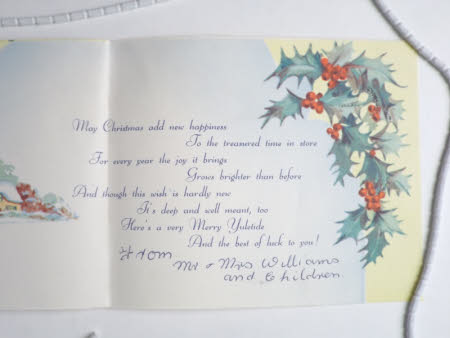 May Christmas add new happiness
To the treasured time in store
For every year the joy it brings
Grows brighter than before
And though this wish is hardly new
It's deep and well meant, too
Here's a very Merry Yuletide
And the best of luck to you!
From
Mr & Mrs Williams
and Children.